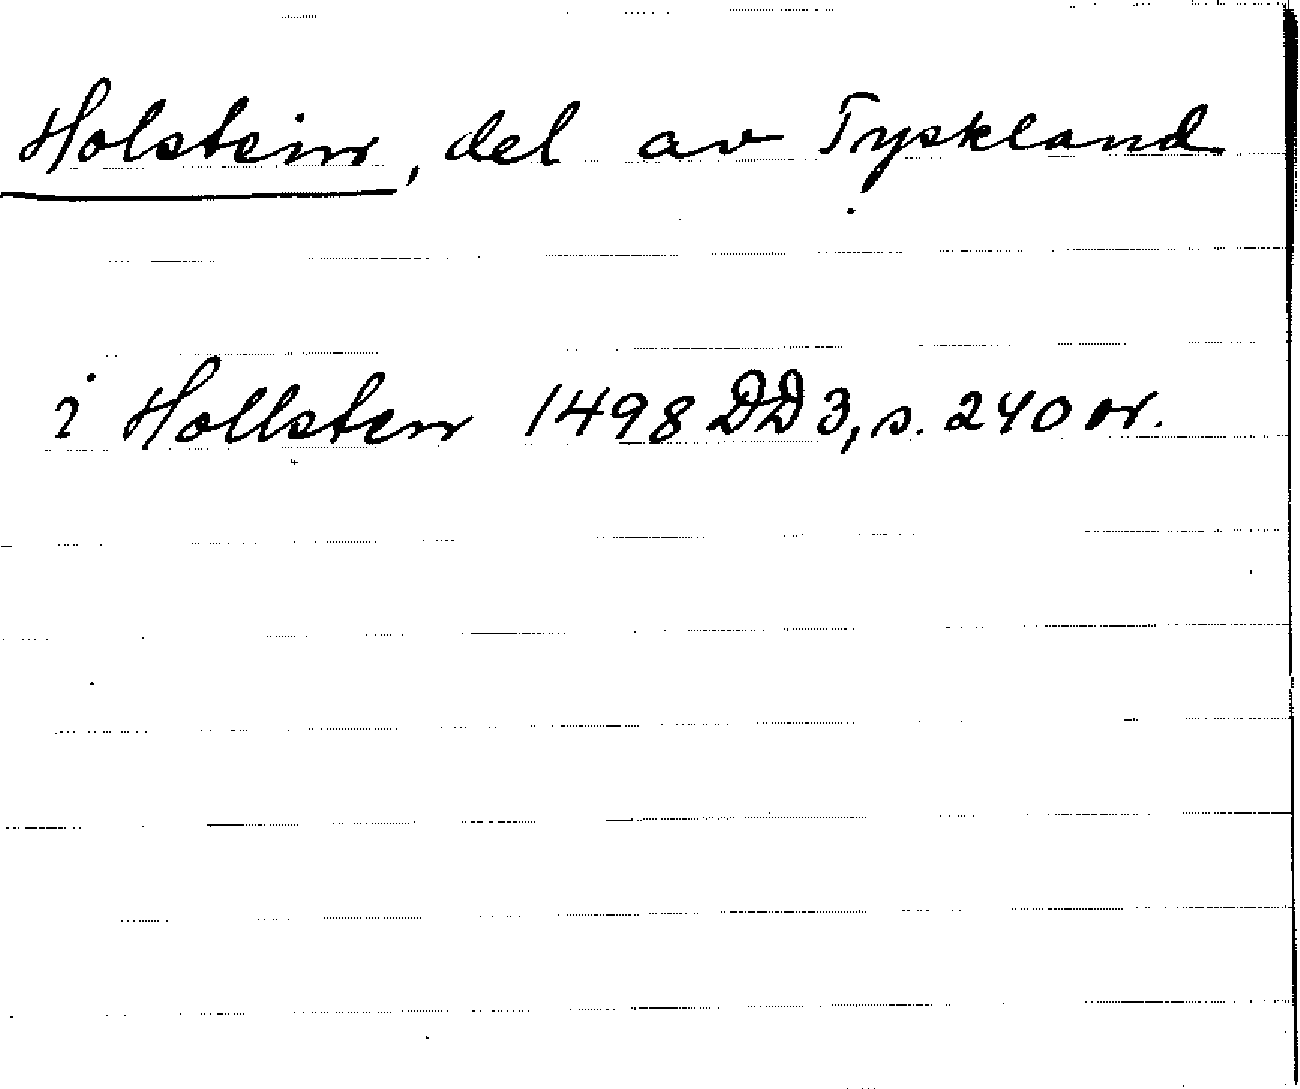 Holstein, del av Tyskland
i Hollsten 1498 DD 3, s. 240 or.